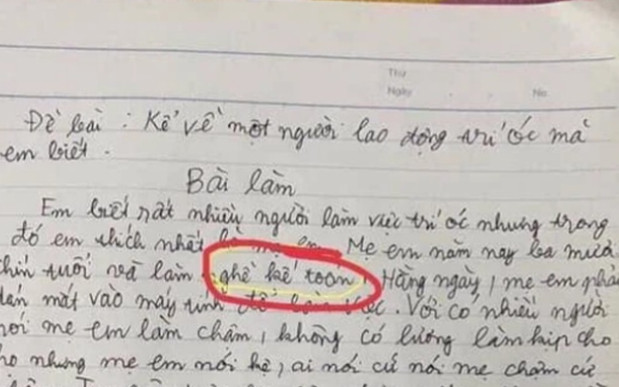 Thứ
Ngày No
Đề bài : Kể về một người lao động trí óc mà
em biết .
Bài làm
Em biết rất nhiều người làm việc trí óc nhưng trong
đó em thích nhất là mẹ em. Mẹ em năm nay ba mươi
chín tuổi và làm nghề kế toán Hằng ngày, mẹ em phải
dán mắt vào máy tính để làm việc. Vời có nhiều người
nói mẹ em làm chậm, không có lương làm kịp cho
họ nhưng mẹ em nói kệ, ai nói cứ nói mẹ chậm cứ